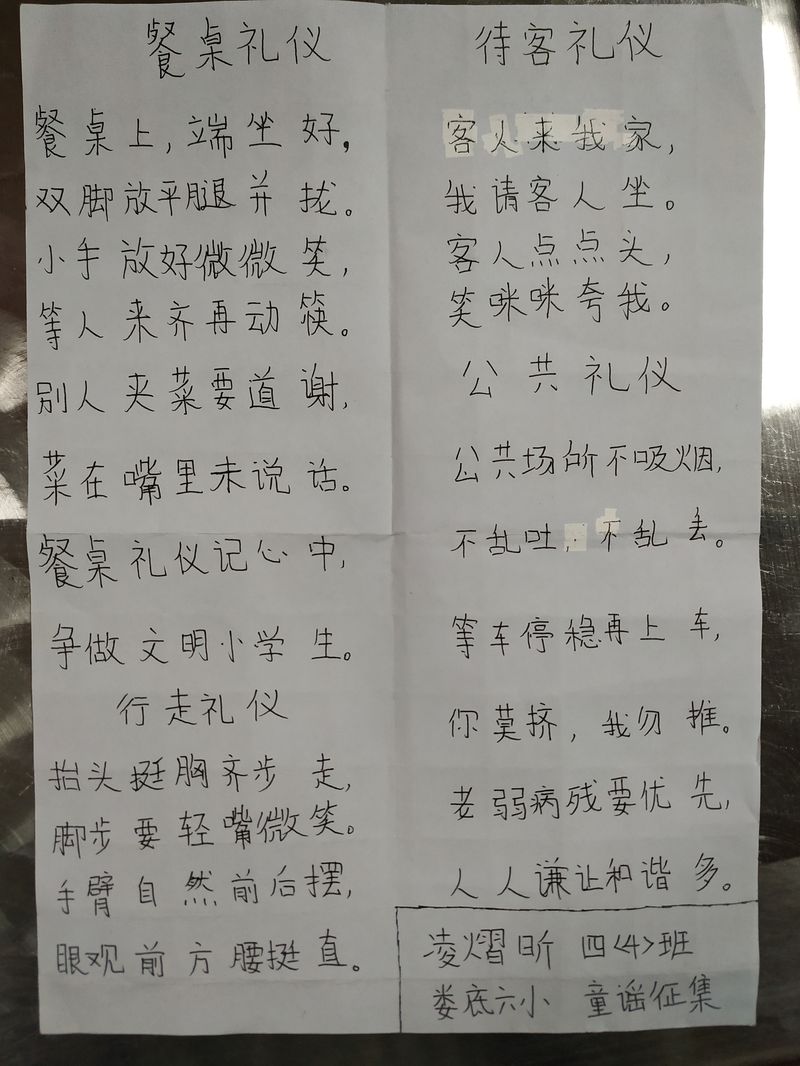 餐桌礼仪
餐桌上,端坐好,
双脚放平腿并拢。
小手放好微微笑,
等人来齐再动筷。
别人夹菜要道谢,
菜在嘴里未说话。
餐桌礼仪记心中,
争做文明小学生。
行走礼仪
抬头挺胸齐步走,
脚步要轻嘴微笑。
手臂自然前后摆,
眼观前方腰挺直。
待客礼仪
客人来我家,
我请客人坐。
客人点点头,
笑咪咪夸我。
公共礼仪
公共场所不吸烟,
不乱吐,不乱丢。
等车停稳再上车,
你莫挤,我勿推。
老弱病残要优先,
人人谦让和谐多。
凌熠昕 四<4>班
娄底六小 童谣征集